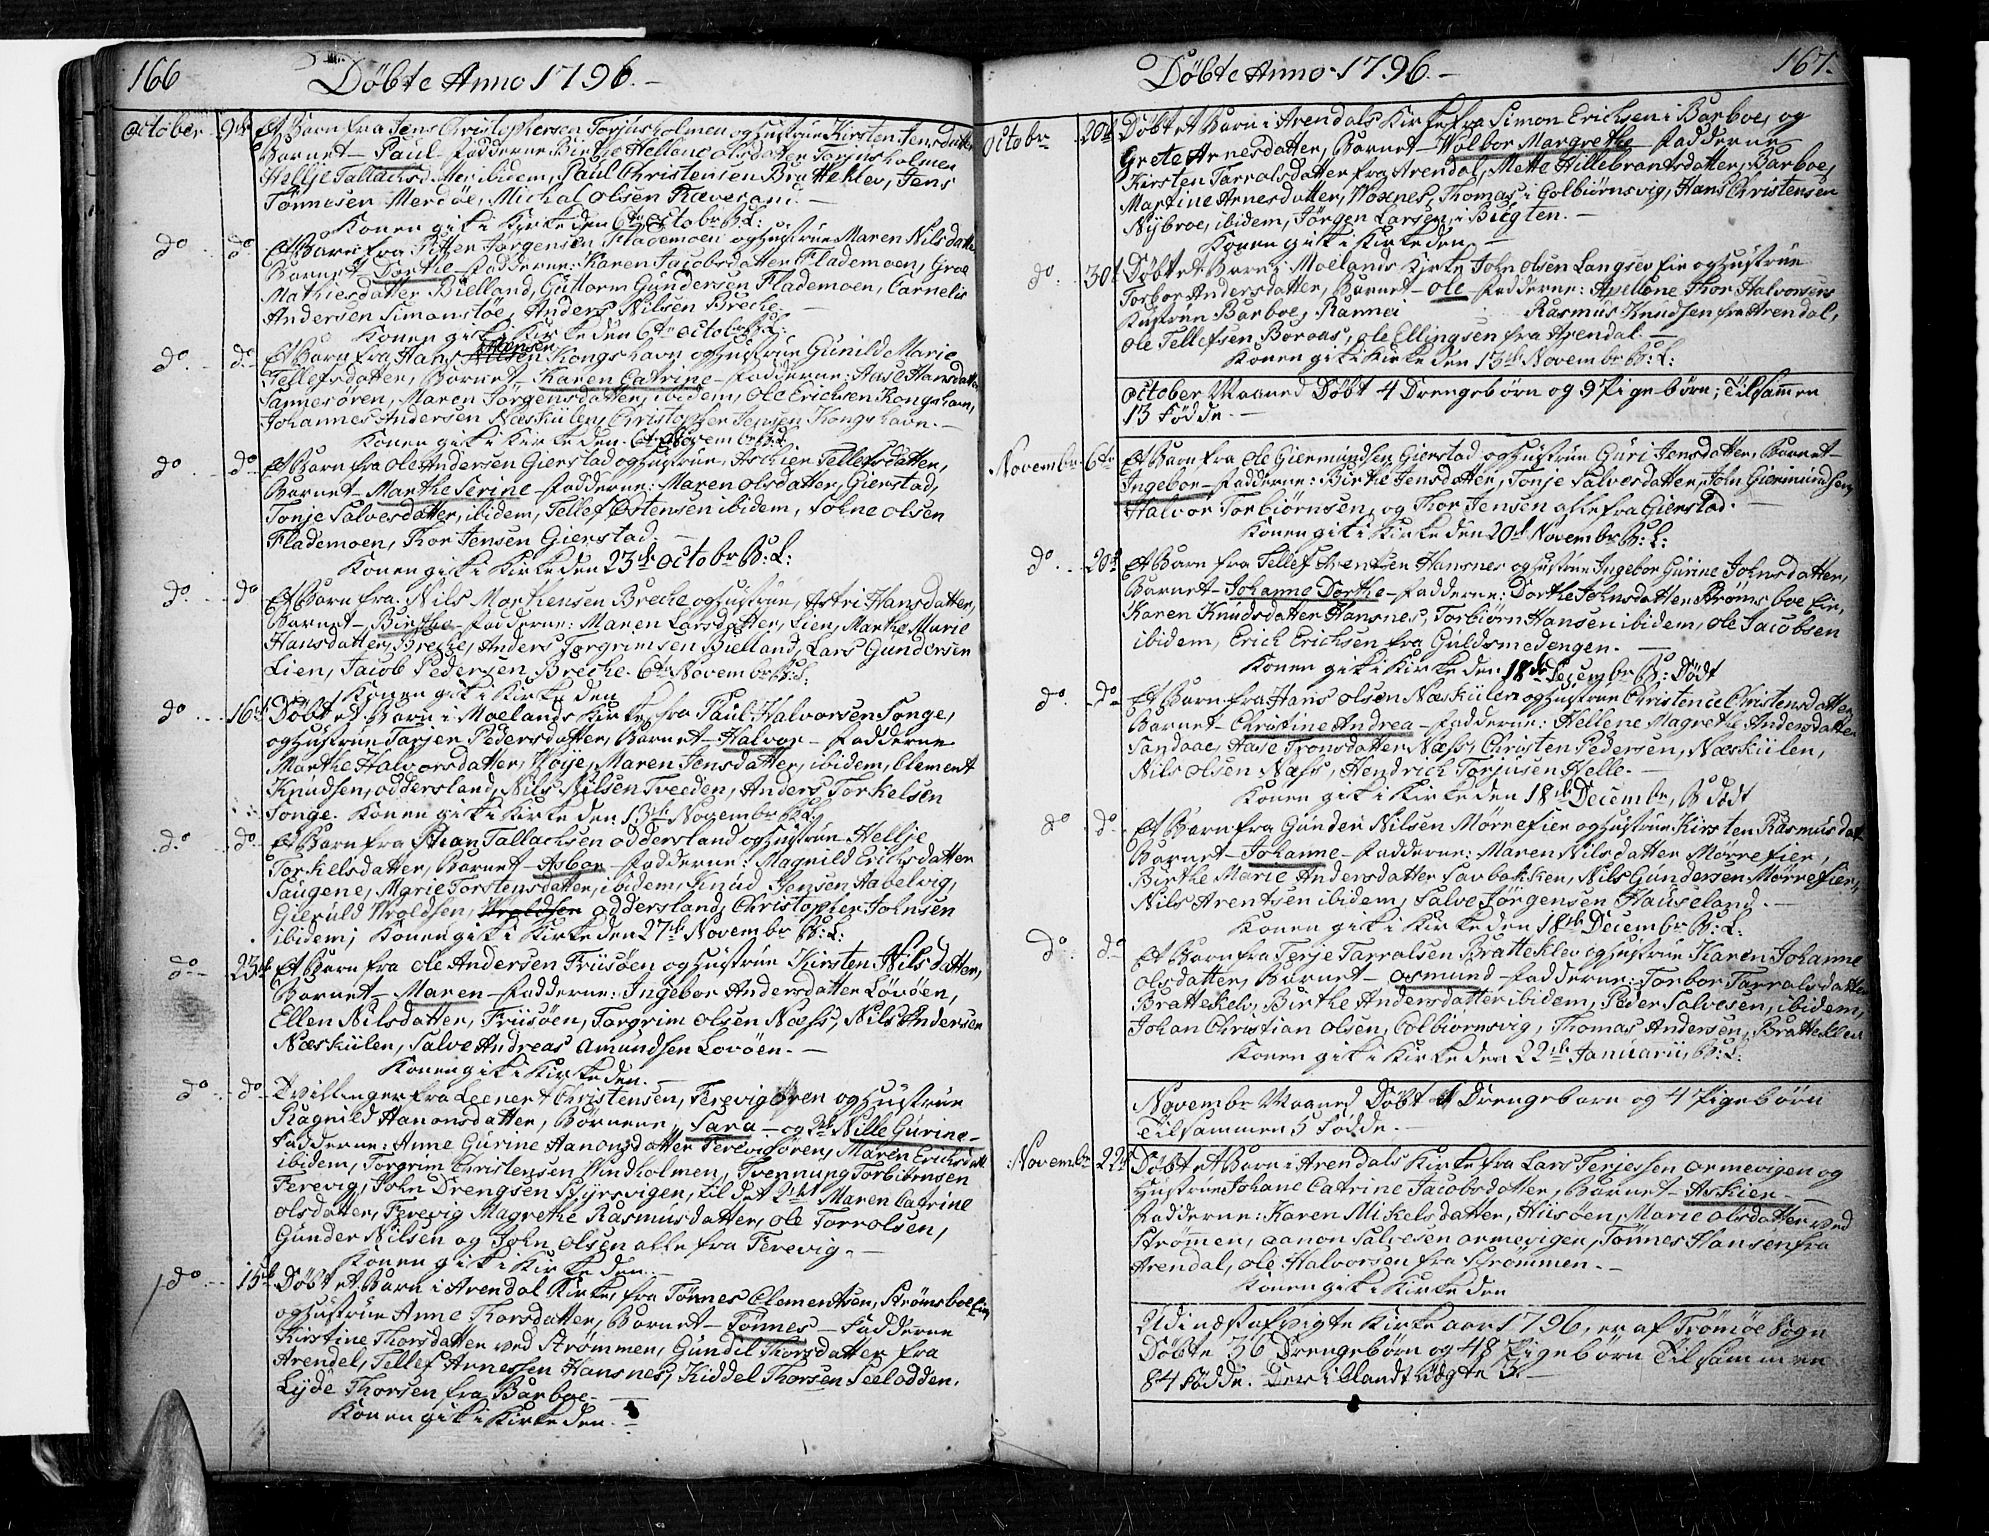 166
Döbte Anno 1796.
October 9de Et Barn fra Jens Christophersen Torjusholmen og Hustrue Kirsten Jensdatter
Barnet - Paul - Fadderne Birthe Hellene Olsdatter Torjusholmen
Hellje Tallachsdatter ibidem, Paul Christensen Bratteklev, Jens
Tönnesen Merdöe, Michal Olsen Ræverand. -
Konen gik i Kirke den 6te Octobr B: L:
do do Et Barn fra Pitter Jörgensen Flademoen og Hustrue Maren Nilsdatter
Barnet - Dorthe - Fadderne: Karen Jacobsdatter Flademoen, Groe
Mathiesdatter Bielland, Guttorm Gundersen Flademoen, Carnelis
Andersen Simonstöe, Anders Nilsen Brecke. -
Konen gik i Kirke den 6te October B: L:
do do Et Barn fra Hans Hansen Kongshavn og Hustrue Gunild Marie
Tellefsdatter, Barnet - Karen Catrine - Fadderne: Aase Hansdatter
Sannesören, Maren Jörgensdatter, ibidem, Ole Erichsen Kongshavn,
Johannes Andersen Næskiilen, Christopher Jensen Kongshavn. -
Konen gik i Kirke den 6te Novembr B: L:
do do Et Barn fra Ole Andersen Gierstad og Hustrue, Aschier Tellefsdatter,
Barnet - Marthe Serine - Fadderne: Maren Olsdatter, Gierstad,
Tonje Salvesdatter, ibidem, Tellef Östensen ibidem, Solne Olsen
Flademoen, Thor Jensen Gierstad. -
Konen gik i Kirke den 23de Octobr B: L:
do do Et Barn fra Nils Morthensen Brecke og Hustrue, Astri Hansdatter,
Barnet - Birthe - Fadderne: Maren Larsdatter, Lien, Marthe Marie
Hansdatter, Brecke, Anders Torgrimsen Bielland, Lars Gundersen
Lien, Jacob Pedersen Brecke. 6te Novembr B: L:
Konen gik i Kirke den
do 16de Döbt et Barn i Moelands Kirke, fra Paul Halvorsen Songe,
og Hustrue Tarjer Pedersdatter, Barnet - Halvor - Fadderne
Marthe Halvorsdatter, Höije, Maren Jensdatter, ibidem, Clement
Knudsen, Oddersland, Nils Nilsen Tveeden, Anders Torkelsen
Songe. Konen gik i Kirke den 13de Novembr B: L:
do do Et Barn fra Stian Tallachsen Oddersland og Hustrue Hellje
Torkelsdatter, Barnet - Asbor - Fadderne: Magnild Erichsdatter
Saugene, Marie Torstensdatter, ibidem, Knud Jensen Aabelvig,
Gieruld Vroldsen, Oddersland, Christopher Johnsen
ibidem; Konen gik i Kirke den 27de Novembr B: L:
do 23de Et Barn fra Ole Andersen Friisöen og Hustrue Kirsten Nilsdatter,
Barnet - Maren - Fadderne: Ingebor Andersdatter Lövöen,
Ellen Nilsdatter, Friisöen, Torgrim Olsen Næss, Nils Andersen
Næskiilen, Salve Andreas Amundsen Lovöen. -
Konen gik i Kirke den. -
do do Tvillinger fra Leenert Christensen, Ferevigören og Hustrue
Ragnild Hanonsdatter, Börnene, Sara - og 2de Nille Gurine -
Fadderne: Anne Gurine Aanonsdatter Ferevigören, Maren Erichsdatter
ibidem, Torgrim Christensen Vindholmen, Trennung Torbiörnsen
Ferevig, John Drengsen Styrsvigen, til det 2det Maren Catrine
Olsdatter, Ferevig Magrethe Rasmusdatter, Ole Torrolsen,
Gunder Nilsen og John Olsen alle fra Ferevig. -
Konen gik i Kirke den. -
do 15de Döbt et Barn i Arendal Kirke, fra Tönnes Clementsen, Strömsboe Eie
og Hustrue Anne Thorsdatter, Barnet - Tönnes - Fadderne
Kirstine Thorsdatter ved Strömmen, Gundil Thorsdatter fra
Arendel, Tellef Arnessen Hansnes, Kiddel Thorsen Seelodden,
Lyde Thorsen fra Barboe. -
Konen gik i Kirke den. -
167.
Döbte Anno 1796. -
Octobr 20de Döbt et Barn i Arendals Kirke fra Simon Erichsen i Barboe, og
Grete Arnesdatter, Barnet - Wolbor Margrethe - Fadderne
Kirsten Tarralsdatter fra Arendal, Mette Hillebrantsdatter, Barboe,
Martine Arnesdatter, Woxnes, Thomas i Colbiörnsvig, Hans Christensen
Nybroe, ibidem, Jörgen Larsen, i Biegten. -
Konen gik i Kirke den -
do 30de Döbt et Barn i Moelands Kirke John Olsen Langsev Eie og Hustrue
Torbor Andersdatter, Barnet - Ole - Fadderne: Apellone Thor Halvorsens
Hustrue Barboe, Rannei Rasmus Knudsen fra Arendal,
Ole Tellefsen Boraas, Ole Ellingsen fra Arendal. -
Konen gik i Kirke den 13de Novembr B: L:
October Maaned Döbt 4 Drengebörn og 9 Pigebörn; Tilsammen
13 Födde. -
Novembr 6te Et Barn fra Ole Giermundsen Gierstad og Hustrue Guri Jensdatter, Barnet -
Ingebor - Fadderne: Birthe Jensdatter, Tonje Salvesdatter, John Giermundsen,
Halvor Torbiörnsen, og Thor Jensen alle fra Gierstad. -
Konen gik i Kirke den 20de Novembr B: L:
do 20de Et Barn fra Tellef Arentsen Hansnes og Hustrue Ingebor Gurine Johnsdatter,
Barnet - Johanne Dorthe - Fadderne: Dorthe Johnsdatter Strömsboe Eie,
Karen Knudsdatter Hansnes, Torbiörn Hansen ibidem, Ole Jacobsen
ibidem, Erich Erichsen fra Guldsmedengen. -
Konen gik i Kirke den 18de Decembr B: Dödt
do do Et Barn fra Hans Olsen Næskiilen og Hustrue Christence Christensdatter
Barnet - Christine Andrea - Fadderne: Hellene Magrethe Andersdatter
Sandaae, Aase Tronsdatter Næss, Christen Pedersen, Næskiilen,
Nils Olsen Næss, Hendrich Torjusen Helle. -
Konen gik i Kirke den 18de Decembr, B dödt
do do Et Barn fra Gunder Nilsen Mörrefier og Hustrue Kirsten Rasmusdatter
Barnet - Johanne - Fadderne: Maren Nilsdatter Mörrefier,
Birthe Marie Andersdatter Savbakken, Nils Gundersen Mörrefier,
Nils Arentsen ibidem, Salve Jörgensen Hauseland. -
Konen gik i Kirke den 18de Decembr B: L:
do do Et Barn fra Terje Tarralsen Bratteklev og Hustrue Karen Johanne
Olsdatter, Barnet - Osmund - Fadderne: Torbor Tarralsdatter
Brattekelv, Birthe Andersdatter ibidem, Peder Salvesen, ibidem,
Johan Christian Olsen, Colbiörnsvig, Thomas Andersen, Bratteklev
Konen gik i Kirke den 22de Januarii, B: L:
Novembr Maaned Döbt 1 Drengebarn og 4 Pigebörn
Tilsammen 5 Födde. -
Novembr 22de Döbt et Barn i Arendals Kirke fra Lars Terjessen Ormevigen og
Hustrue Johane Catrine Jacobsdatter, Barnet - Askier -
Fadderne: Karen Mikelsdatter, Hiisöen, Marie Olsdatter ved
Strömmen, Aanon Salvesen Ormevigen, Tönnes Hansen fra
Arendal, Ole Halvorsen fra Strömmen. -
Konen gik i Kirke den
Udi næstafvigte Kirke aar 1796, er af Tromöe Sogn
Döbte 36 Drengebörn og 48 Pigebörn Tilsammen
84 Födde. Der iblandt Uægte 3. -